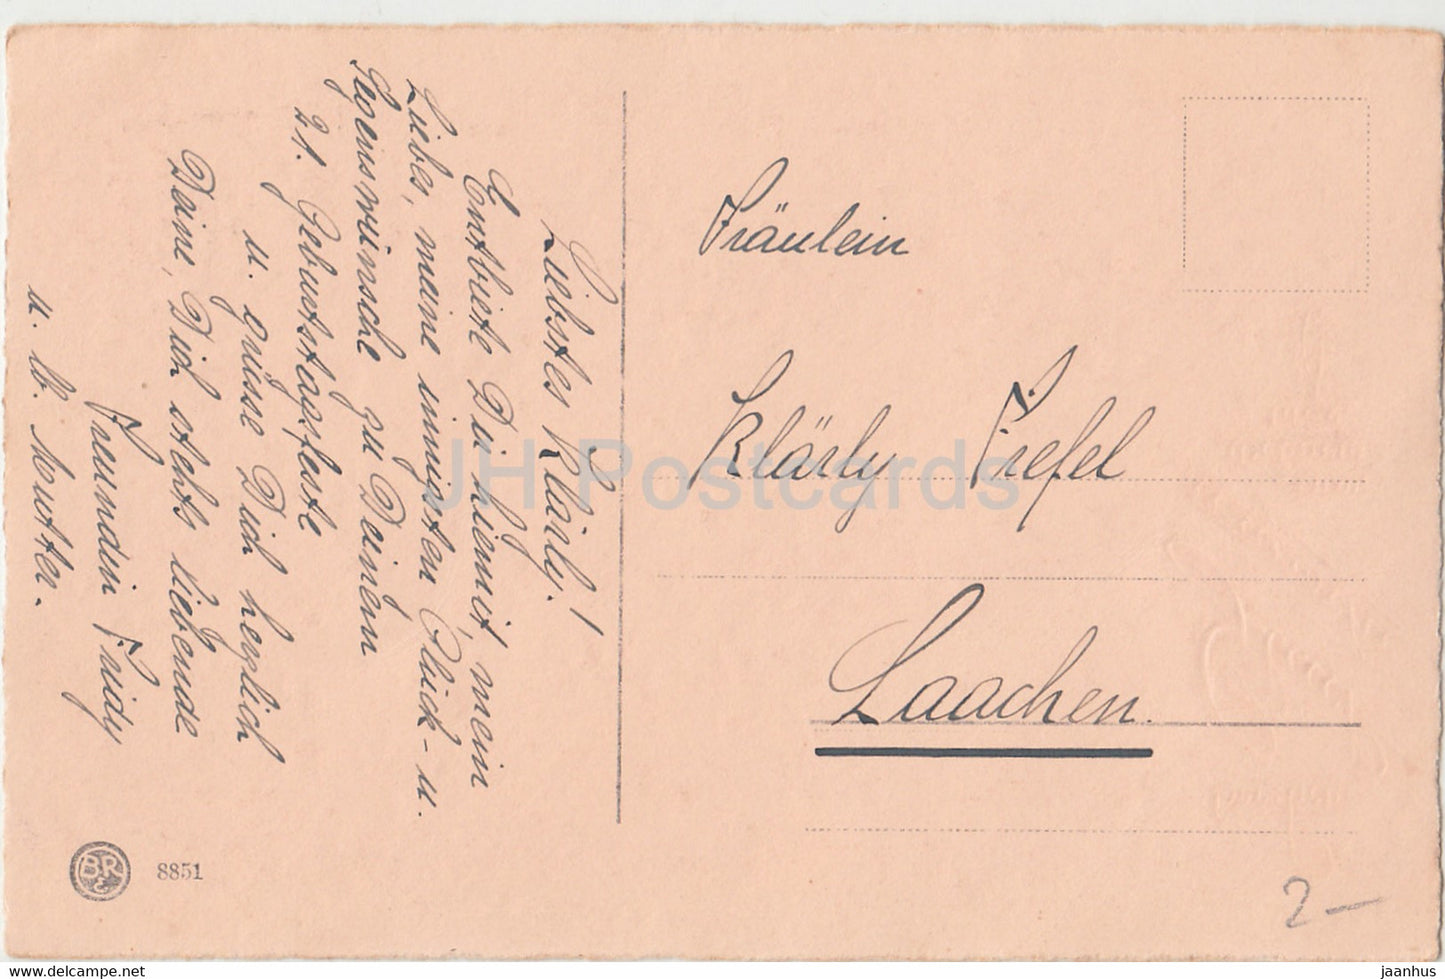 Liebstes Klärly!
Entbiete Dir hiemit, mein
Liebes, meine innigsten Glück- u.
Segenswünsche zu Deinem
21. Geburtstagsfeste
u. grüsse Dich herzlich
Deine, Dich stehts liebende
Freundin Fridy
u. lb. Mutter.
Fräulein
Klärly Trefel
Laachen.
JH Postcards
BR
8851
2 —
jaanhus